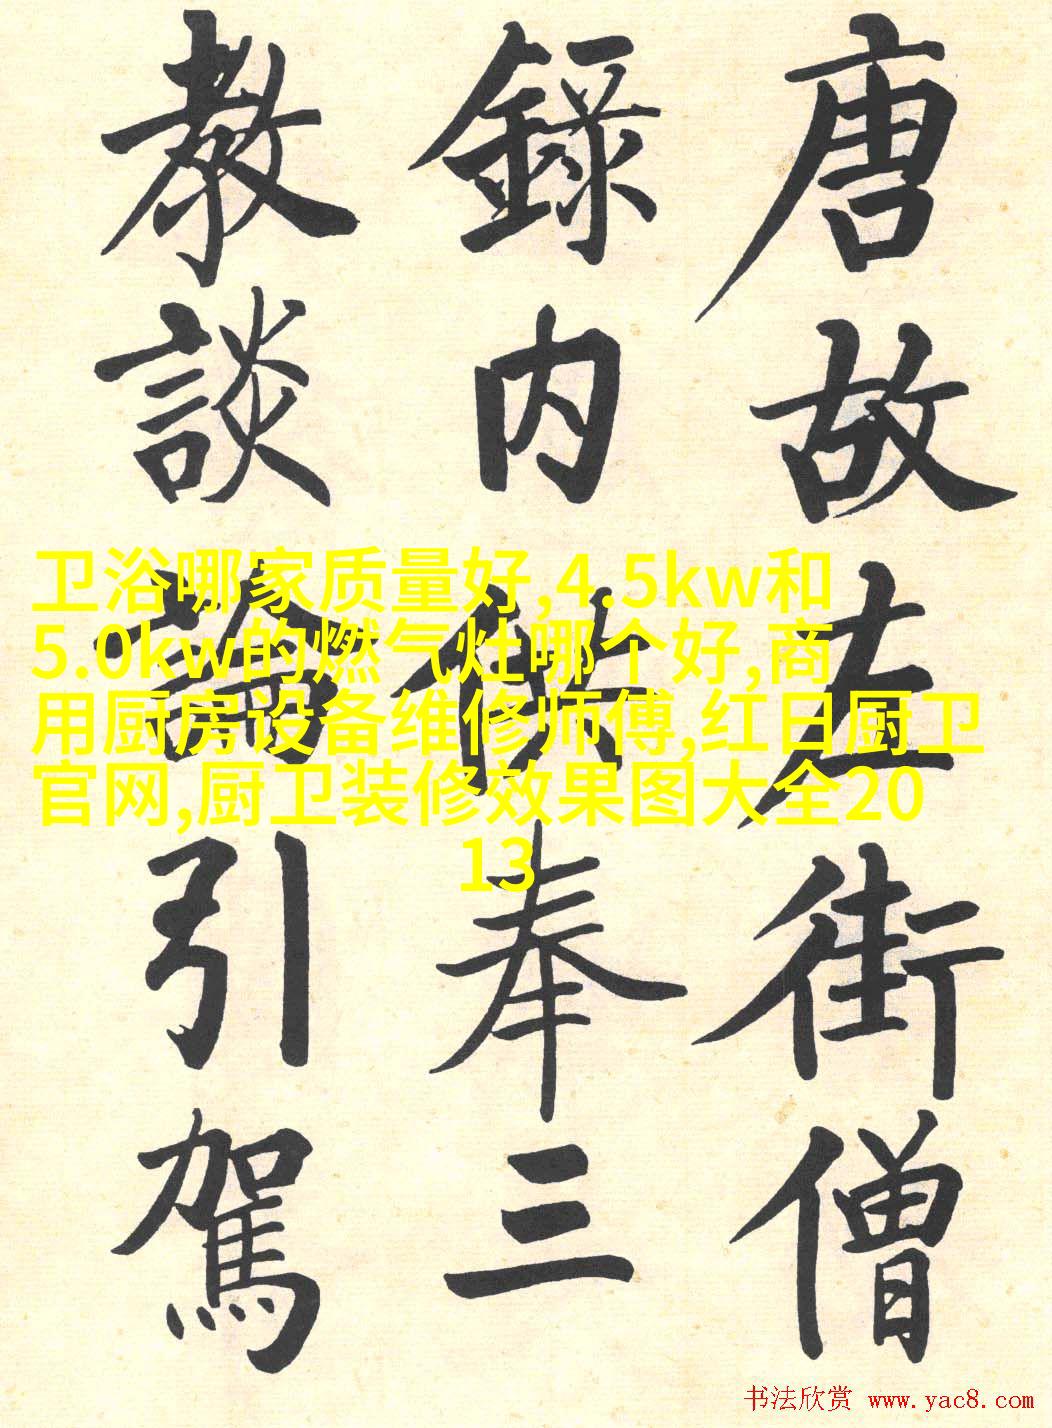 唐故左街僧
錄内供奉三
教談論引駕
卫浴哪家质量好,4.5kw和
5.0kw的燃气灶哪个好,商
用厨房设备维修师傅,红日厨卫
官网,厨卫装修效果图大全20
13
书法欣赏 www.yac8.com